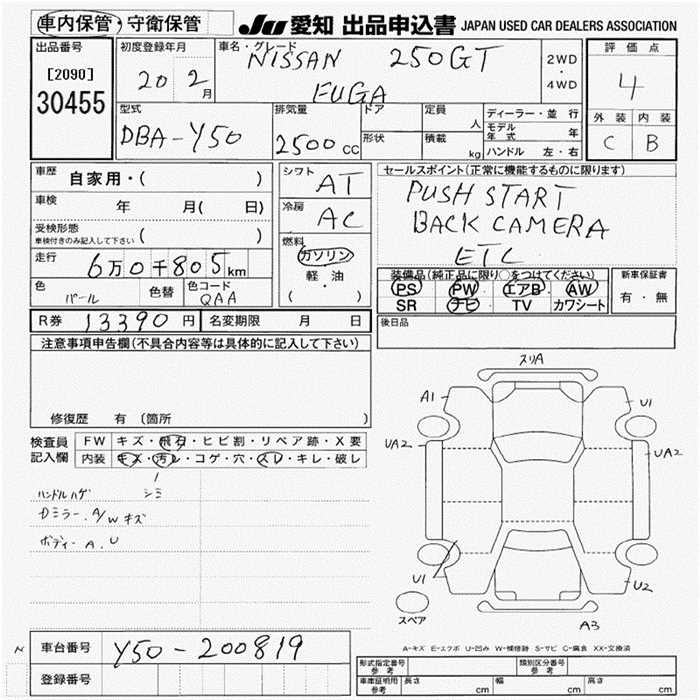 車内保管・守衛保管
JU 愛知 出品申込書 JAPAN USED CAR DEALERS ASSOCIATION
出品番号
[2090]
30455
初度登録年月
20 2月
車名・グレード
NISSAN 250GT
FUGA
2WD
・
4WD
評価点
4
外装 内装
C B
型式
DBA-Y50
排気量
2500 CC
ドア
形状
定員 人
積載 kg
ディーラー・並行
モデル年式 年
ハンドル 左・右
車歴 自家用・( )
車検 年 月( 日)
受検形態
車検付きのみ記入して下さい ( )
走行 6万0千805km
色 パール 色替 色コード QAA
シフト AT
冷房 AC
燃料
ガソリン
軽・油
( ・ )
セールスポイント(正常に機能するものに限ります)
PUSH START
BACK CAMERA
ETC
装備品(純正品に限り○をつけてください)
PS PW エアB AW
SR ナビ TV カワシート
新車保証書
有・無
R券 13390円 名変期限 月 日
後日品
注意事項申告欄(不具合内容等は具体的に記入して下さい)
修復歴 有 (箇所 )
検査員記入欄
FW キズ・飛石・ヒビ割・リペア跡・X要
内装 キズ・汚レ・コゲ・穴・スレ・キレ・破レ
ハンドルハゲ シミ
Dミラー.A/Wキズ
ボディー A.U
スリA
A1 U1
UA2 UA2
U1 U2
スペア
A3
A-キズ E-エクボ U-凹み W-補修跡 S-サビ C-腐食 XX-交換済
N
車台番号 Y50-200819
登録番号
形式指定番号 参考
類別区分番号 参考
車庫証明用 参考 長さ cm 幅 cm 高さ cm